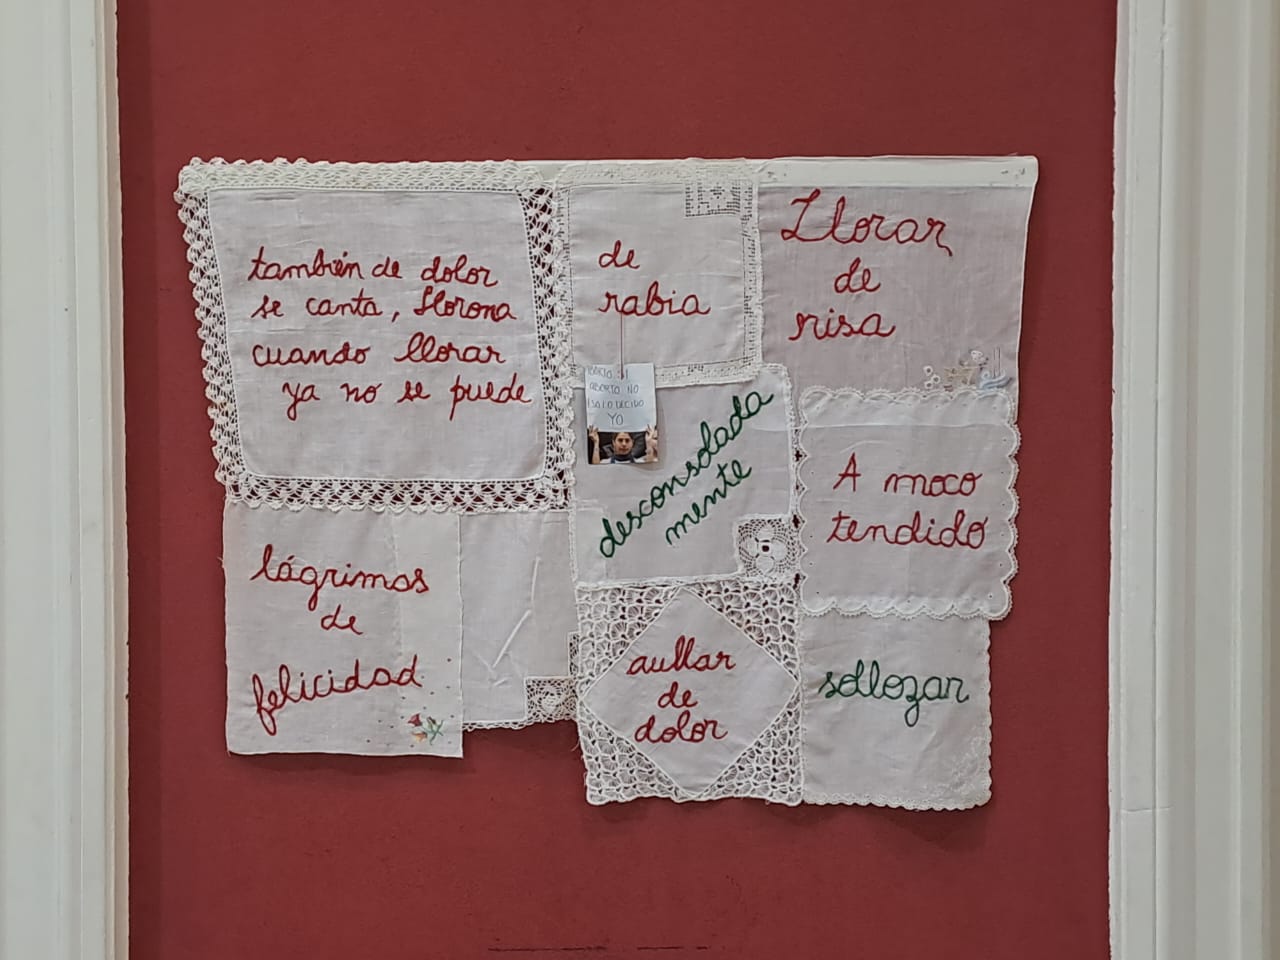 también de dolor
se canta, Llorona
cuando llorar
ya no se puede
de
rabia
Llorar
de
risa
ABORTO NO
YO
desconsolada
mente
A moco
tendido
lágrimas
de
felicidad
aullar
de
dolor
sollozar